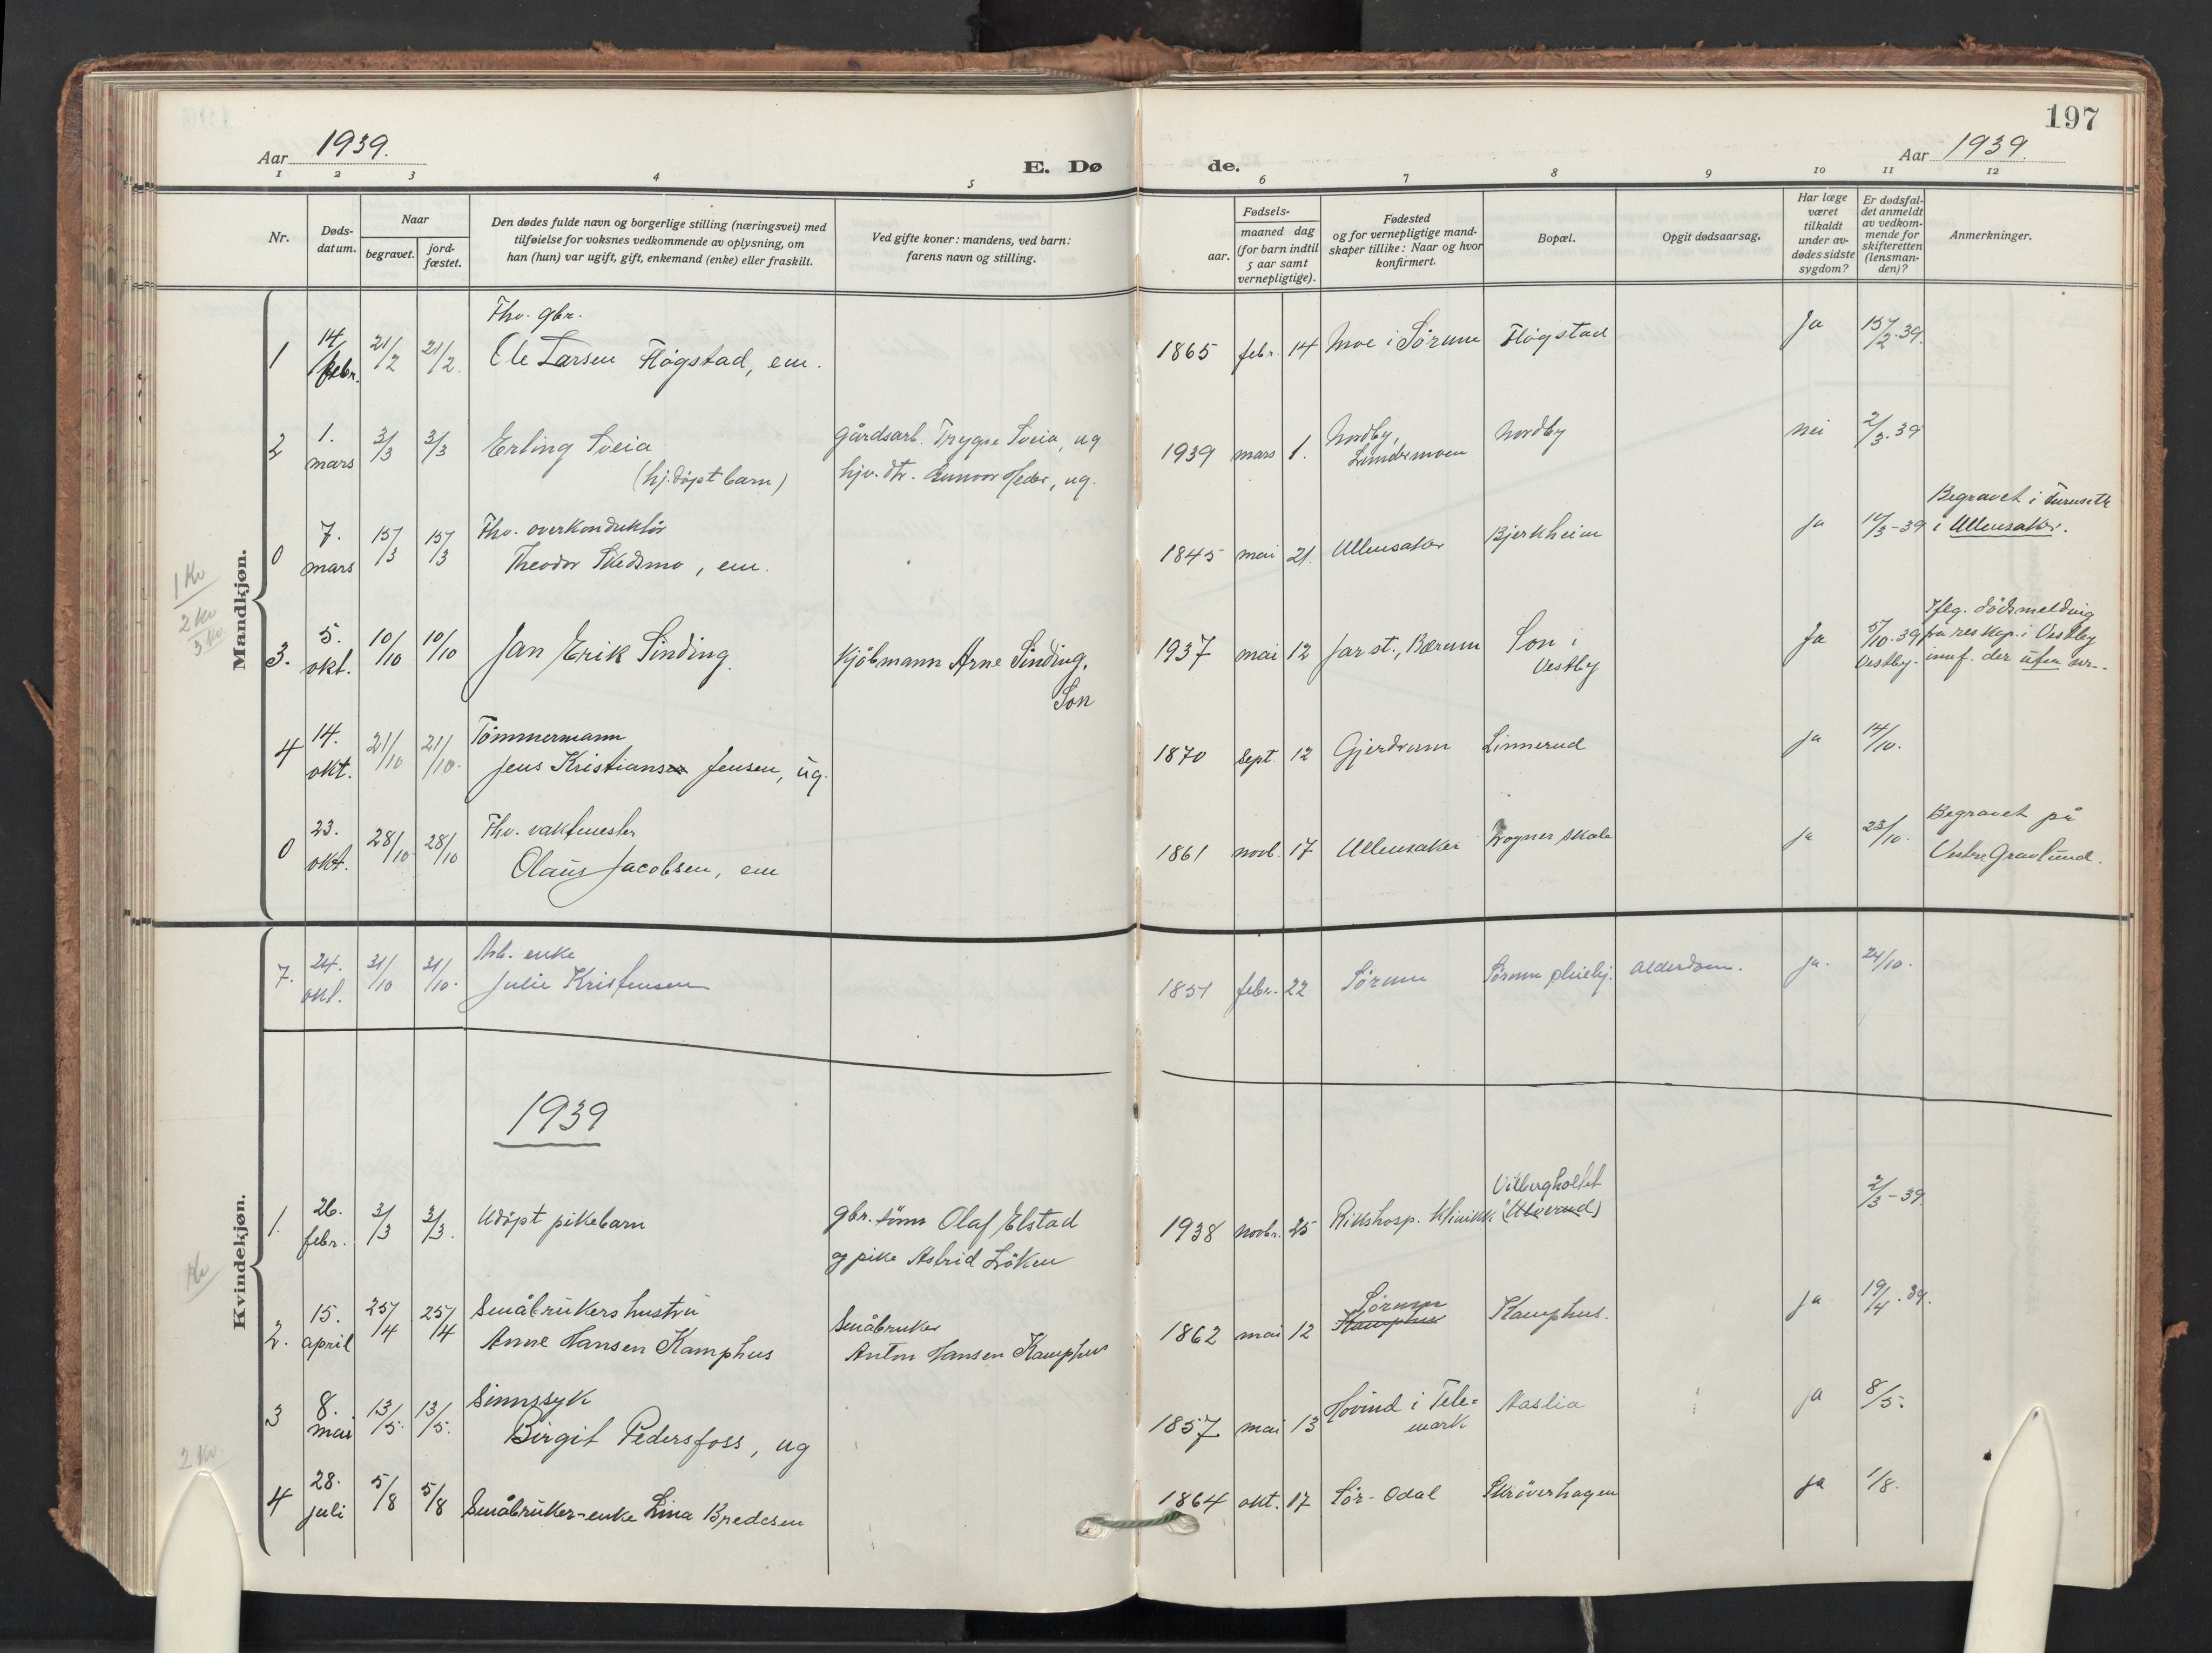 197
Aar 1939.
E. Døde.
Aar 1939.
1 2 3 4 5 6 7 8 9 10 11 12
Nr.
Døds-
datum.
Naar
begravet.
jord-
fæstet.
Den dødes fulde navn og borgerlige stilling (næringsvei) med
tilføielse for voksnes vedkommende av oplysning, om
han (hun) var ugift, gift, enkemand (enke) eller fraskilt.
Ved gifte koner: mandens, ved barn:
farens navn og stilling.
Fødsels-
aar.
maaned dag
(for barn indtil
5 aar samt
vernepligtige).
Fødested
og for vernepligtige mand-
skaper tillike: Naar og hvor
konfirmert.
Bopæl.
Opgit dødsaarsag.
Har læge
været
tilkaldt
under av-
dødes sidste
sygdom?
Er dødsfal-
det anmeldt
av vedkom-
mende for
skifteretten
(lensman-
den)?
Anmerkninger.
Mandkjøn.
1 Kv
2 Kv
3 Kv.
Fhv. gbr.
1 14/febr. 21/2 21/2. Ole Larsen Fløgstad, em. 1865 febr. 14 Moe i Sørum Fløgstad Ja 15/2.39.
2 1. mars 3/3 3/3 Erling Sveia gårdsarb. Trygve Sveia, ug 1939 mars 1. Nordby, Nordby nei 2/3.39
(hj.døpt barn) hjv. dtr. Gunvor, ug. Lundermoen
Begravet i Furuseth
0 7. mars 15/3 15/3 Fhv. overkonduktør 1845 mai 21. Ullensaker Bjerkheim ja 10/3-39 i Ullensaker.
Theodor Skedsmo, em.
Iflg. dødsmelding
3. 5. okt. 10/10 10/10 Jan Erik Sinding. Kjøbmann Arne Sinding, 1937 mai 12 Jar st., Bærum Son i Ja 5/10.39 fra res kap. i Vestby
Son Vestby Vestby. innf. der uten nr..
4 14. okt. 21/10 21/10. Tømmermann
Jens Kristiansen Jensen, ug. 1870 Sept. 12 Gjerdrum Linnerud ja 14/10.
0 23. okt. 28/10 28/10 Fhv. vaktmester Begravet på
Olaus Jacobsen, em 1861 novb. 17 Ullensaker Vogner skole ja 23/10. Vestre Gravlund.
Kvindekjøn.
7. 24. okt. 31/10 31/10. Arb. enke
Julie Kristensen 1851 febr. 22 Sørum Sørum pleiehj. Alderdom. ja. 24/10.
1939
Kv
2 Kv.
Vilbergholtet
1. 26. febr. 3/3 3/3. Udøpt pikebarn gbr. sønn Olaf Elstad 1938 novbr. 25 Rikshosp. Klinikk (Ulverud) 2/3-39
og pike Astrid Løken
2. 15. april 25/4 25/4 Småbrukers hustru Småbruker Sørum
Anne Hansen Kamphus Anton Hansen Kamphus 1862 mai 12 Kamphus Kamphus. ja 19/4.39.
3 8. mai 13/5. 13/5. Sinnssyk
Birgit Pedersfoss, ug 1857 mai 13 Hovind i Tele= Aaslia ja 8/5.
mark
4 28. juli 5/8 5/8 Småbruker-enke Lina Bredesen 1864 okt. 17 Sør-Odal Skrøverhagen ja 1/8.